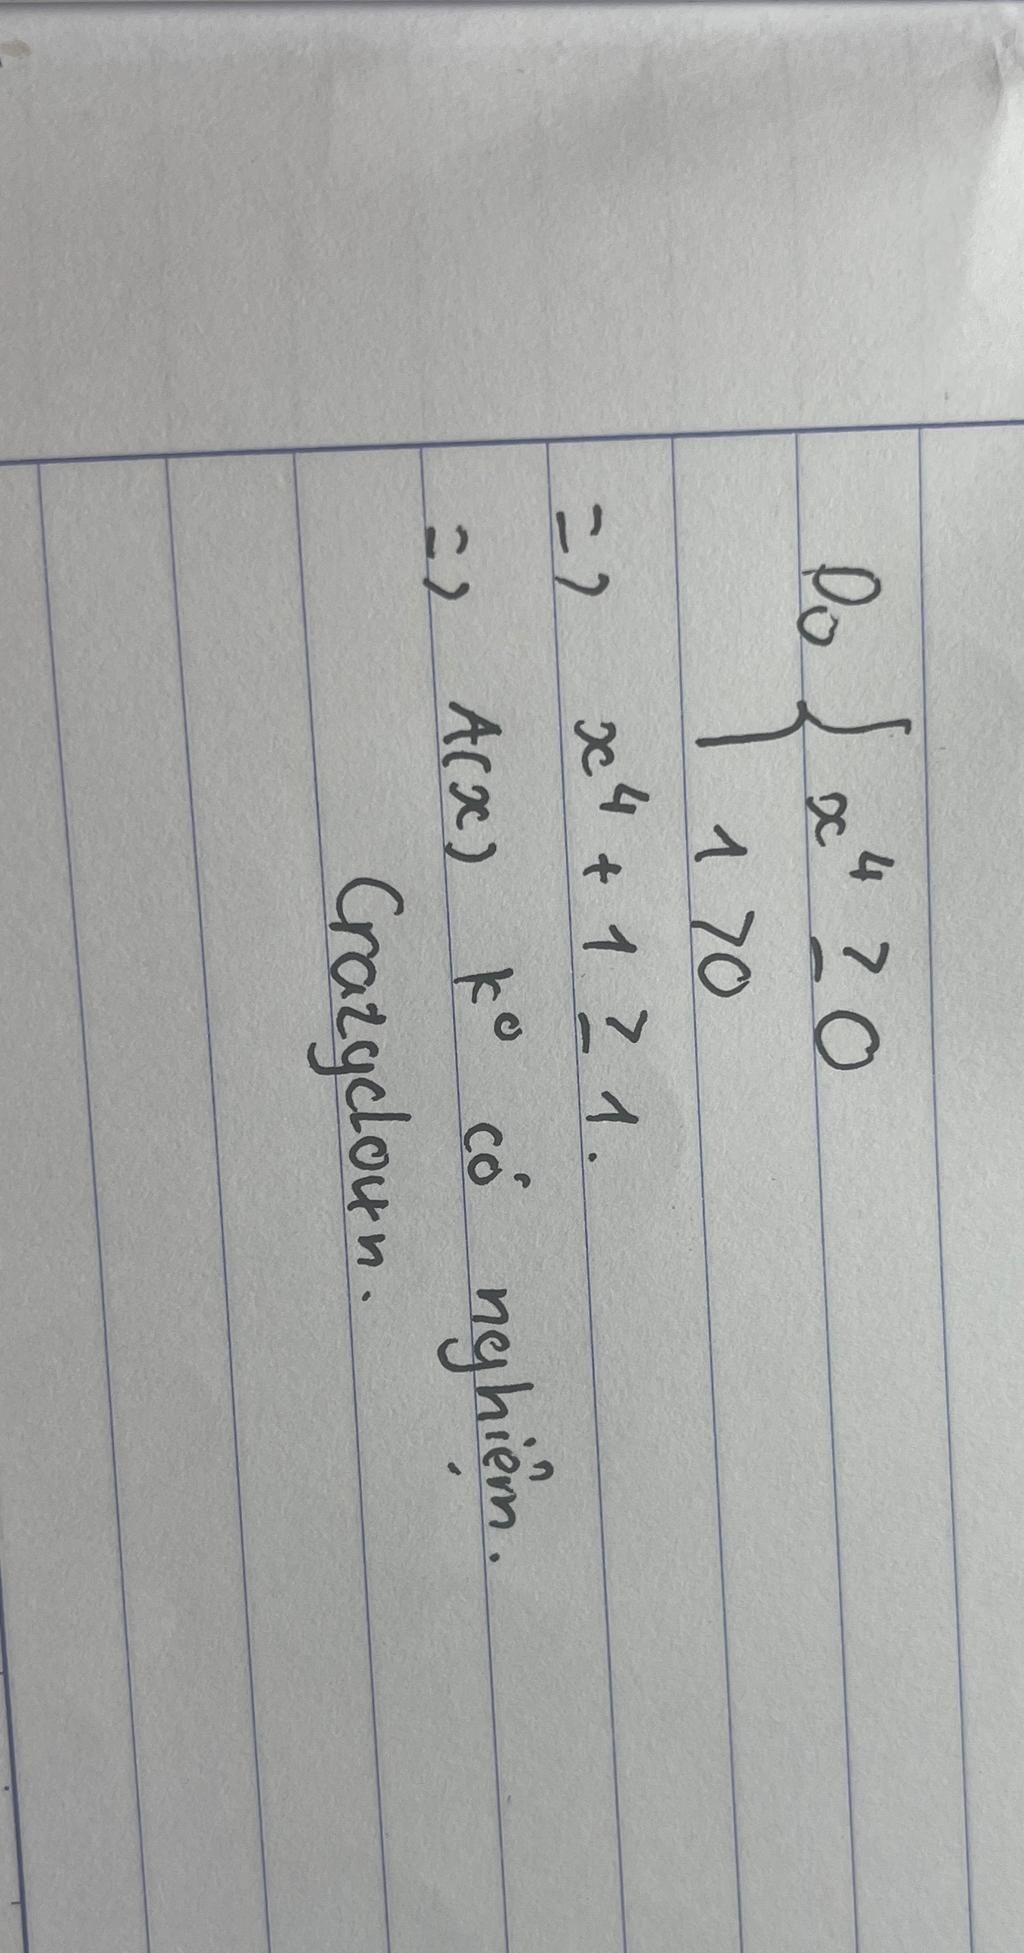 Do { x⁴ ≥ 0
1 > 0
=> x⁴ + 1 ≥ 1.
=> A(x) k° có nghiệm.
Crazyclown.